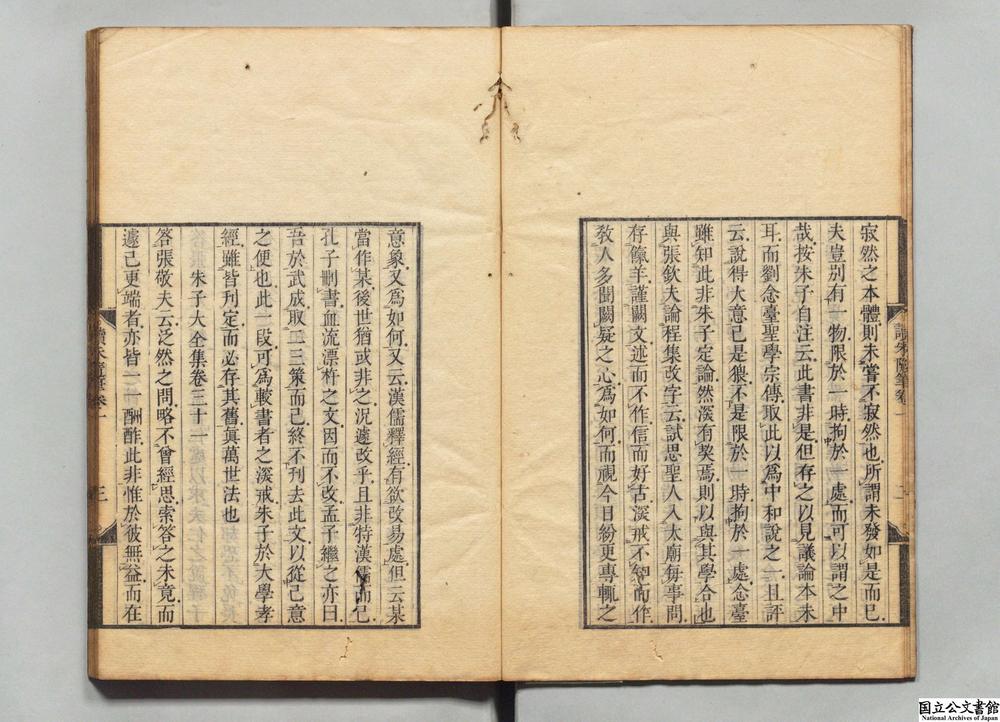 寂然之本體則未嘗不寂然也所謂未發如是而已
夫豈别有一物限於一時拘於一處而可以謂之中
哉按朱子自注云此書非是但存之以見議論本末
耳而劉念臺聖學宗傳取此以爲中和說之一且評
云說得大意已是猥不是限於一時拘於一處念臺
雖知此非朱子定論然深有契焉則以與其學合也
與張欽夫論程集改字云試思聖人入太廟每事問
存餼羊謹闕文述而不作信而好古深戒不知而作
敎人多聞闕疑之心爲如何而視今日紛更專輒之
讀朱隨筆卷一
二
意象又爲如何又云漢儒釋經有欲改易處但云某
當作某後世猶或非之況遽改乎且非特漢儒而已
孔子刪書血流漂杵之文因而不改孟子繼之亦曰
吾於武成取二三策而已終不刋去此文以從己意
之便也此一段可爲較書者之深戒朱子於大學孝
經雖皆刊定而必存其舊眞萬世法也
朱子大全集卷三十一
答張敬夫云泛然之問略不曾經思索答之未竟而
遽已更端者亦皆一一酬酢此非惟於彼無益而在
讀朱隨筆卷一
三
国立公文書館
National Archives of Japan